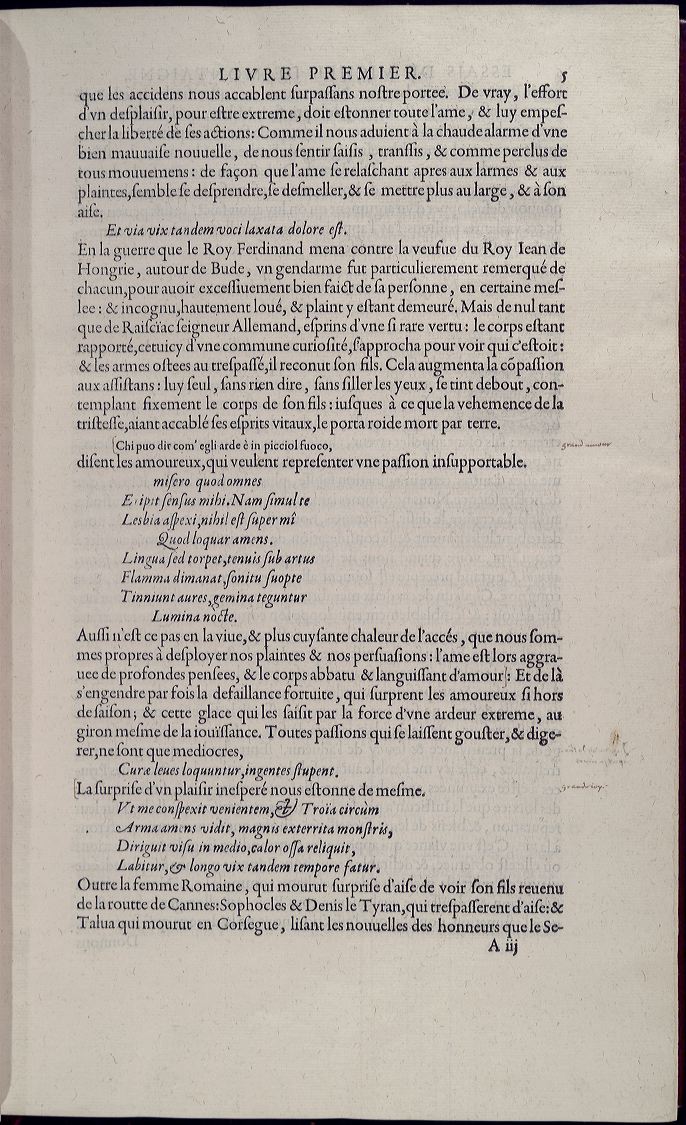 LIVRE PREMIER. 5
que les accidens nous accablent ſurpaſſans noſtre portee. De vray, l'effort
d'vn deſplaiſir, pour eſtre extreme, doit eſtonner toute l'ame, & luy empeſ-
cher la liberté de ſes actions: Comme il nous aduient à la chaude alarme d'vne
bien mauuaiſe nouuelle, de nous ſentir ſaiſis, tranſſis, & comme perclus de
tous mouuemens: de façon que l'ame ſe relaſchant apres aux larmes & aux
plaintes, ſemble ſe deſprendre, ſe deſmeller, & ſe mettre plus au large, & à ſon
aiſe.
Et via vix tandem voci laxata dolore eſt.
En la guerre que le Roy Ferdinand mena contre la veufue du Roy Iean de
Hongrie, autour de Bude, vn gendarme fut particulierement remerqué de
chacun, pour auoir exceſſiuement bien faict de ſa perſonne, en certaine meſ-
lee: & incognu, hautement loué, & plaint y eſtant demeuré. Mais de nul tant
que de Raiſcïac ſeigneur Allemand, eſprins d'vne ſi rare vertu: le corps eſtant
rapporté, cetuicy d'vne commune curioſité, s'approcha pour voir qui c'eſtoit:
& les armes oſtees au treſpaſſé, il reconut ſon fils. Cela augmenta la cõpaſſion
aux aſſiſtans: luy ſeul, ſans rien dire, ſans ſiller les yeux, ſe tint debout, con-
templant fixement le corps de ſon fils: iuſques à ce que la vehemence de la
triſteſſe, aiant accablé ſes eſprits vitaux, le porta roide mort par terre.
Chi puo dir com' egli arde è in picciol fuoco,
diſent les amoureux, qui veulent repreſenter vne paſſion inſupportable.
miſero quod omnes
Eripit ſenſus mihi. Nam ſimul te
Lesbia aſpexi, nihil eſt ſuper mî
Quod loquar amens.
Lingua ſed torpet, tenuis ſub artus
Flamma dimanat, ſonitu ſuopte
Tinniunt aures, gemina teguntur
Lumina nocte.
Auſſi n'eſt ce pas en la viue, & plus cuyſante chaleur de l'accés, que nous ſom-
mes propres à deſployer nos plaintes & nos perſuaſions: l'ame eſt lors aggra-
uee de profondes penſees, & le corps abbatu & languiſſant d'amour: Et de là
s'engendre par fois la defaillance fortuite, qui ſurprent les amoureux ſi hors
de ſaiſon; & cette glace qui les ſaiſit par la force d'vne ardeur extreme, au
giron meſme de la iouïſſance. Toutes paſſions qui ſe laiſſent gouſter, & dige-
rer, ne ſont que mediocres,
Curæ leues loquuntur, ingentes ſtupent.
La ſurpriſe d'vn plaiſir ineſperé nous eſtonne de meſme.
Vt me conſpexit venientem, & Troïa circùm
Arma amens vidit, magnis exterrita monſtris,
Diriguit viſu in medio, calor oſſa reliquit,
Labitur, & longo vix tandem tempore fatur.
Outre la femme Romaine, qui mourut ſurpriſe d'aiſe de voir ſon fils reuenu
de la routte de Cannes: Sophocles & Denis le Tyran, qui treſpaſſerent d'aiſe: &
Talua qui mourut en Corſegue, liſant les nouuelles des honneurs que le Se-
A iij